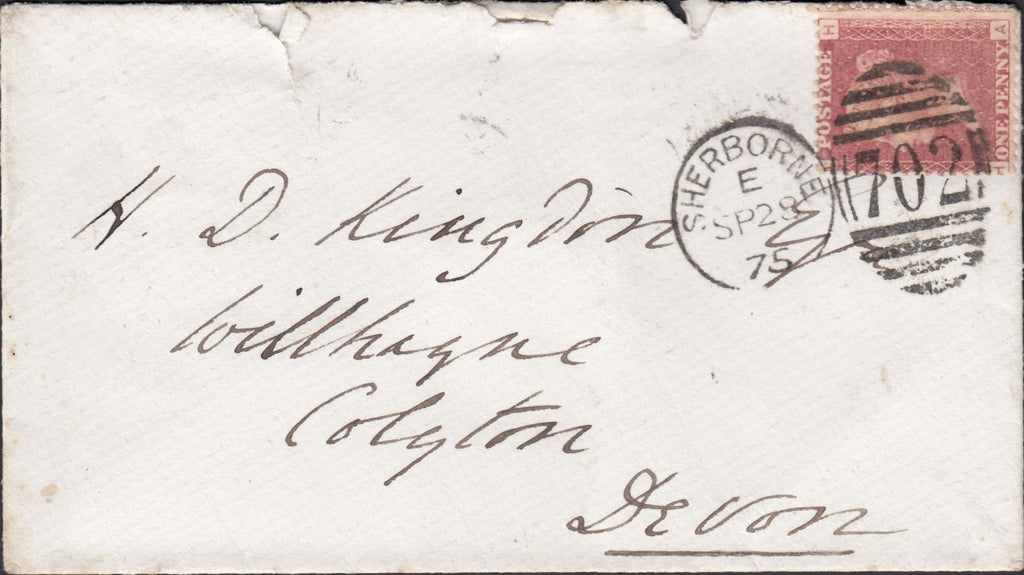 H A
POSTAGE
ONE PENNY
H
SHERBORNE
E
SP 28
75
702
H. D. Kingdon Esq
Willhayne
Colyton
Devon